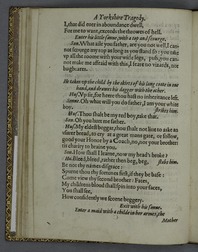 A Yorkshire Tragedy.
I, that did euer in aboundance dwell,
For me to want, exceeds the throwes of hell.
Enter his little sonne, with a top and a scourge.
Son, What aile you father, are you not well, I can-
not scourge my top as long as you stand so: you take
vp all the roome with your wide legs, you can-
not make mee afraid with this, I feare no vizards, nor
bugbeares.
He takes vp the child by the skirts of his long coate in one
hand, and drawes his dagger with the other.
Hu, Vp sir, for heere thou hast no inheritance left.
Sonne, Oh what will you do father, I am your white
boy.
Hus. Thou shalt be my red boy, take that. strikes him.
son Oh you hurt me father.
Hus, My eldest beggar, thou shalt not liue to aske an
vsurer bread, to cry at a great mans gate, or follow
good your Honor by a Coach, no, nor your brother:
tis charity to braine you.
Son, How shall I learne, now my heads broke?
Hu. Bleed, bleed, rather then beg, beg, stabs him.
Be not thy names disgrace:
Spurne thou thy fortunes first, if they be base:
Come view thy second brother: Fates,
My childrens blood shall spin into your faces,
You shall see,
How confidently we scorne beggery.
Exit with his sonne.
Enter a maid with a child in her armes, the
Mother